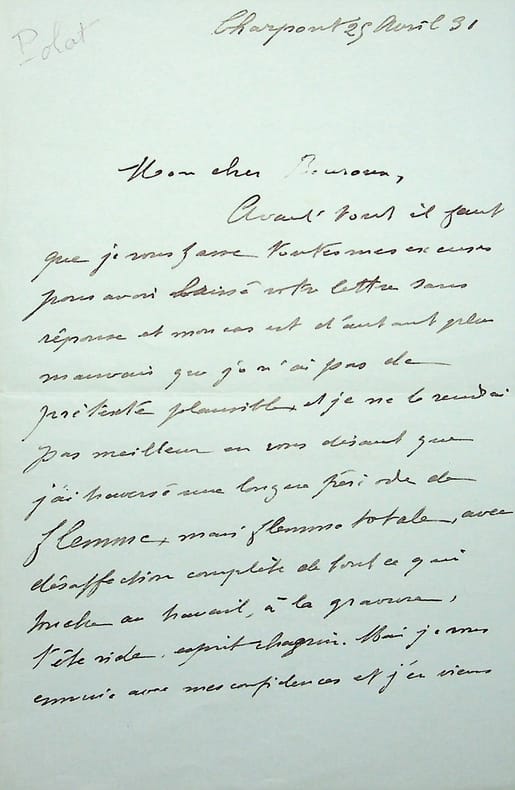 Polat
Charpont 25 Avril 31
Mon cher
Avant tout il faut
que je vous fasse toutes mes excuses
pour avoir laissé votre lettre sans
réponse et mon cas est d'autant plus
mauvais que je n'ai pas de
prétexte plausible, et je ne le rendrai
pas meilleur en vous disant que
j'ai traversé une longue période de
flemme, mais flemme totale, avec
désaffection complète de tout ce qui
touche au travail, à la gravure,
tête vide, esprit chagrin. Mais je vous
ennuie avec mes confidences et j'en viens